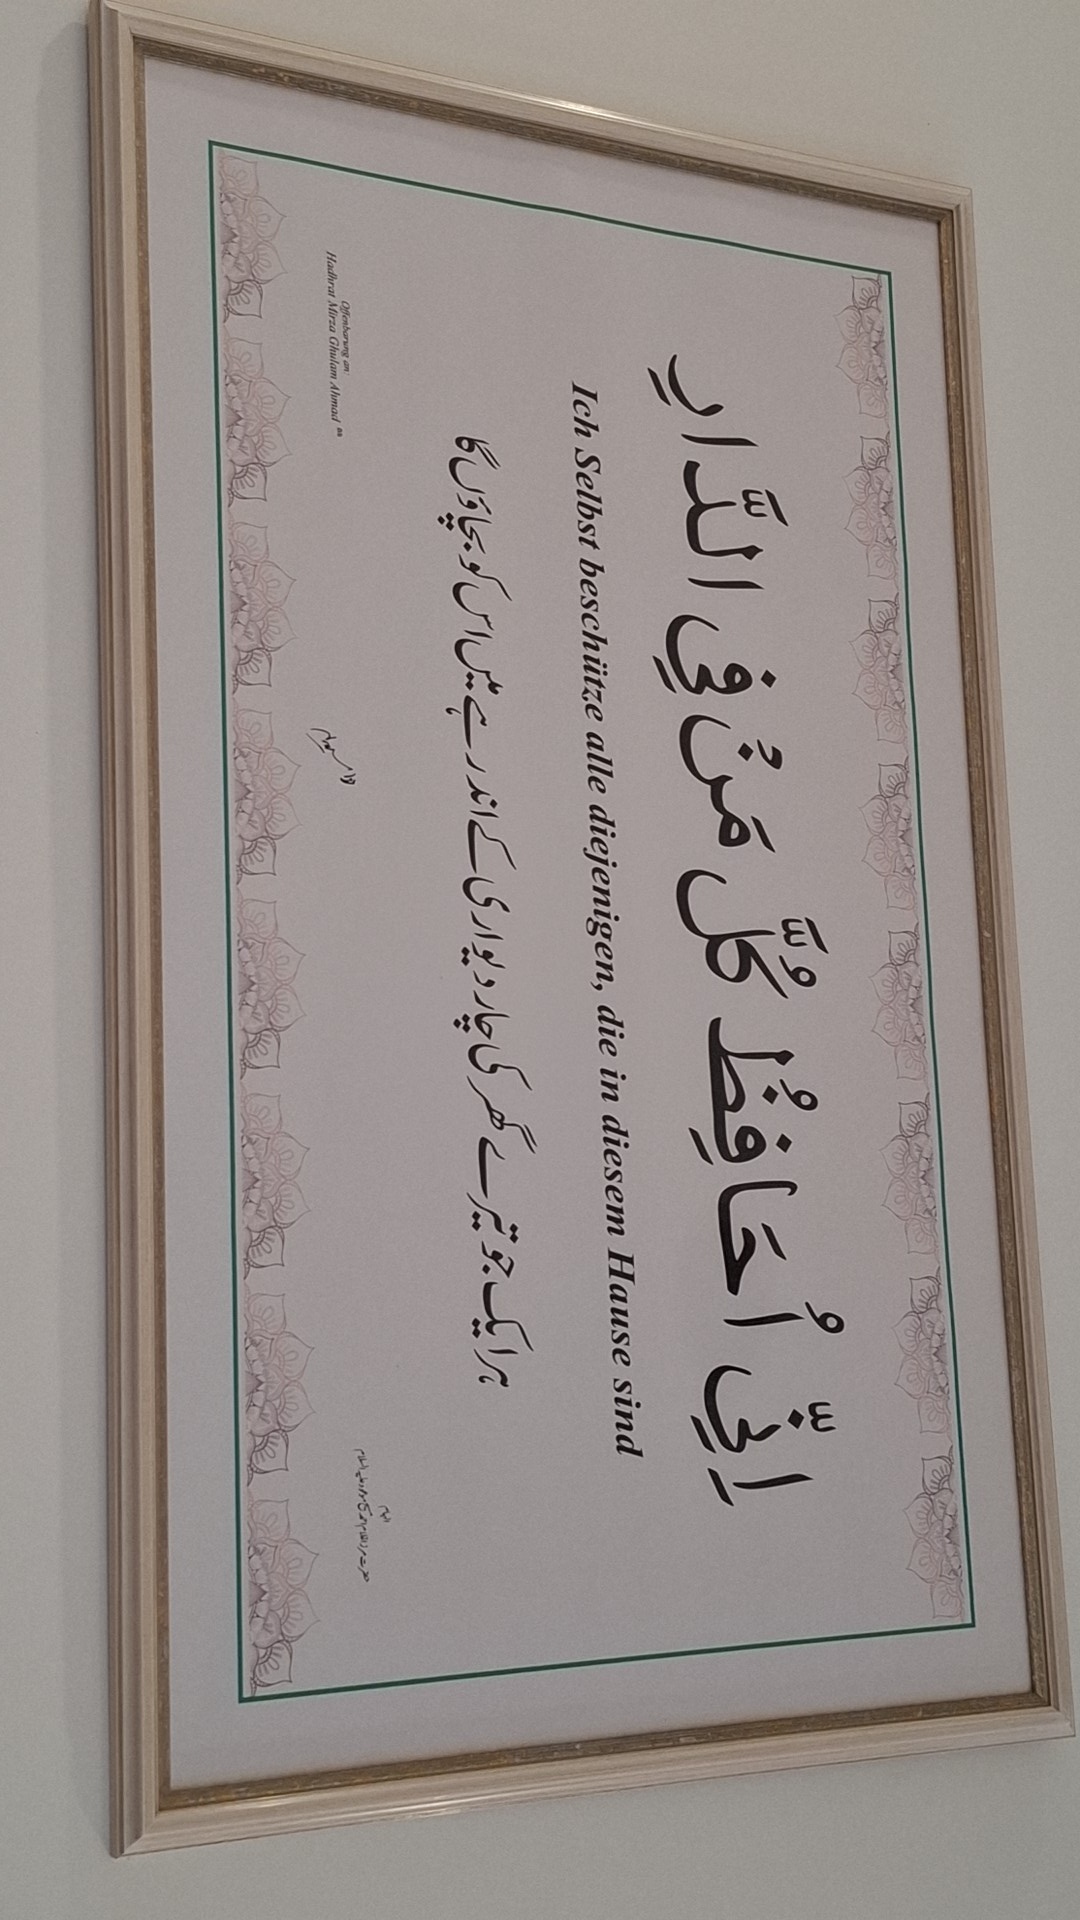 اِنِّیْ اُحَافِظُ کُلَّ مَنْ فِی الدَّارِ
Ich Selbst beschütze alle diejenigen, die in diesem Hause sind
ہر ایک جو تیرے گھر کی چار دیواری کے اندر ہے میں اس کو بچاؤں گا
Offenbarung an:
Hadhrat Mirza Ghulam Ahmad as